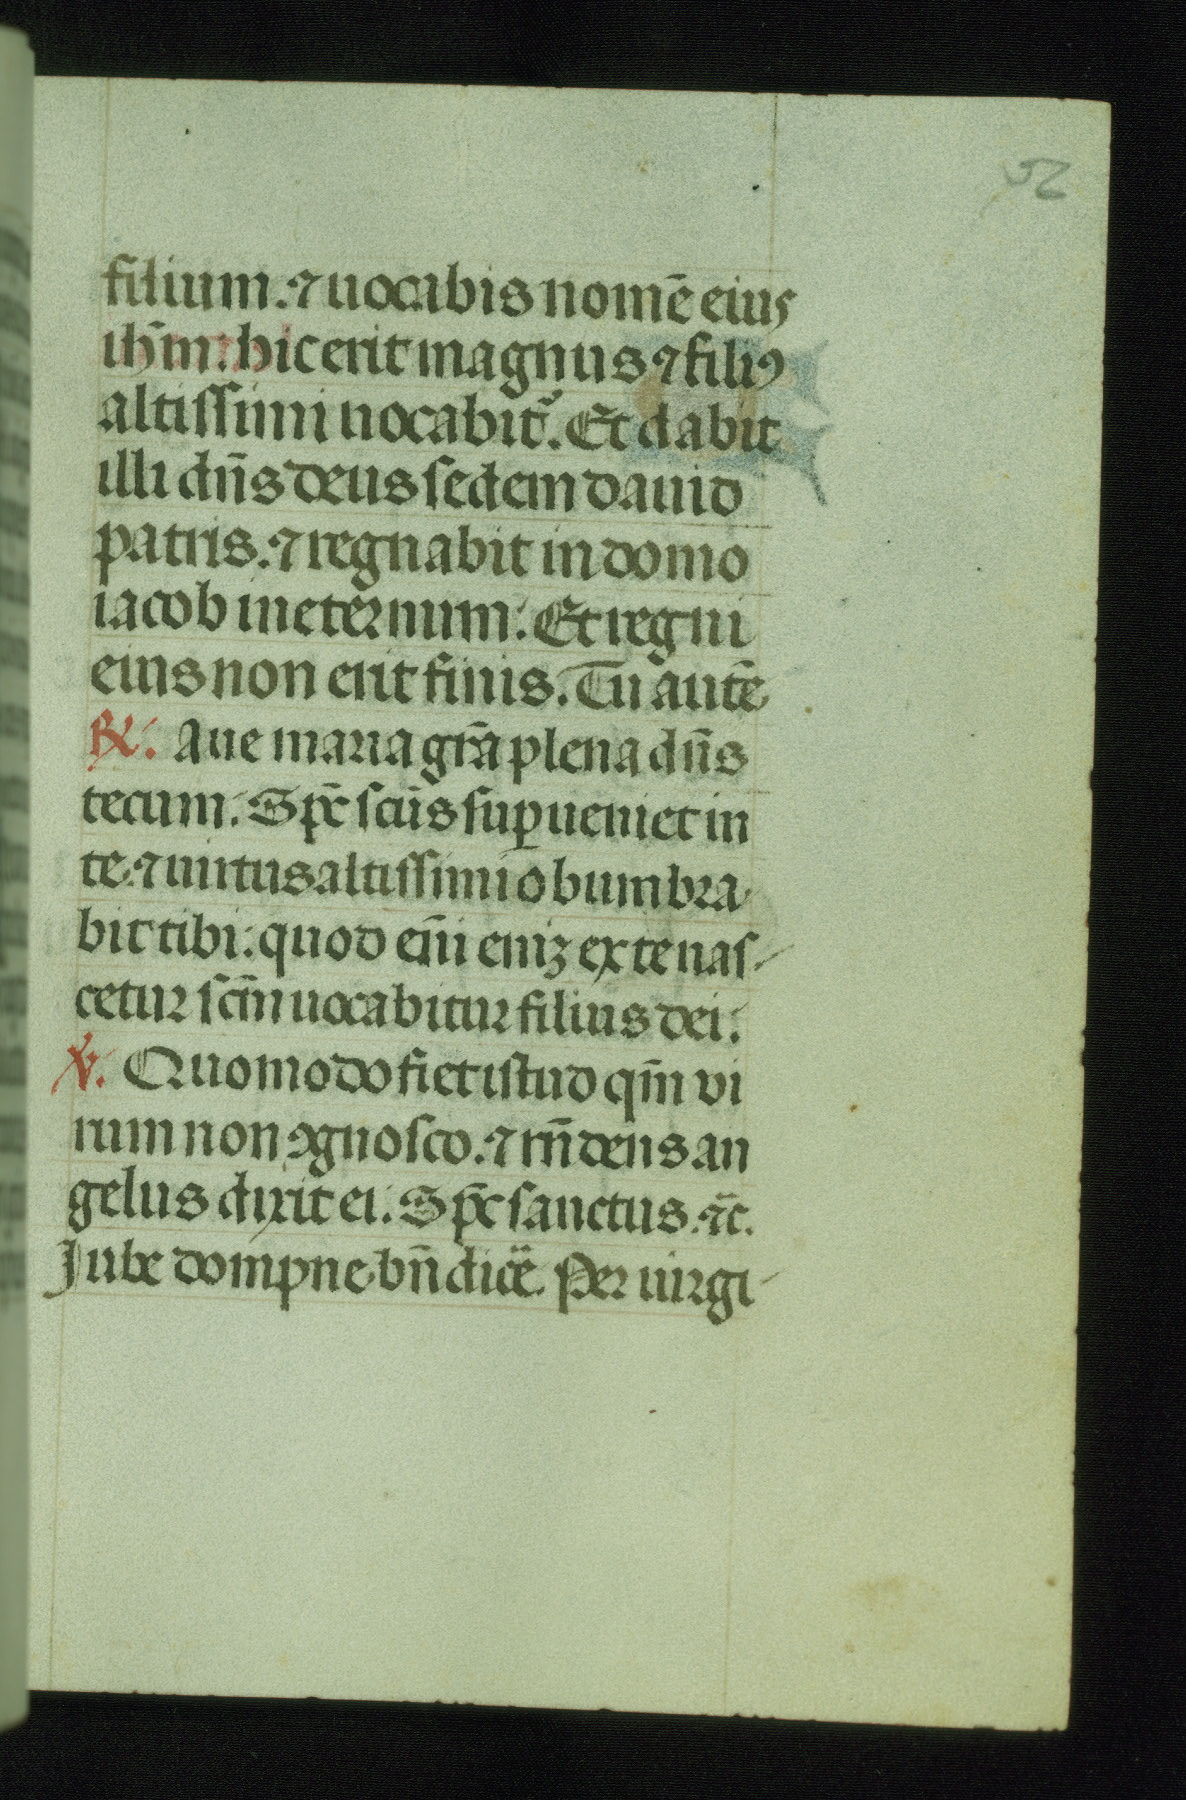 52
filium. ⁊ uocabis nomē eius
ih̄m. hic erit magnus ⁊ filiꝰ
altissimi uocabit᷑. Et dabit
illi dn̄s deus sedem dauid
patris. ⁊ regnabit in domo
iacob in eternum. Et regni
eius non erit finis. Tu autē
℟. Aue maria gr̄a plena dn̄s
tecum. Sp̄c sc̄us suꝑueniet in
te. ⁊ uirtus altissimi obumbra
bit tibi. quod em̄i eniꝫ ex te nas-
cetur sc̄m uocabitur filius dei.
℣. Quomodo fiet istud qm̄ vi
rum non ꝯgnosco. ⁊ rn̄dens an
gelus dixit ei. Sp̄c sanctus. ⁊c̄.
Iube dompne bn̄dicē. Per uirgi-